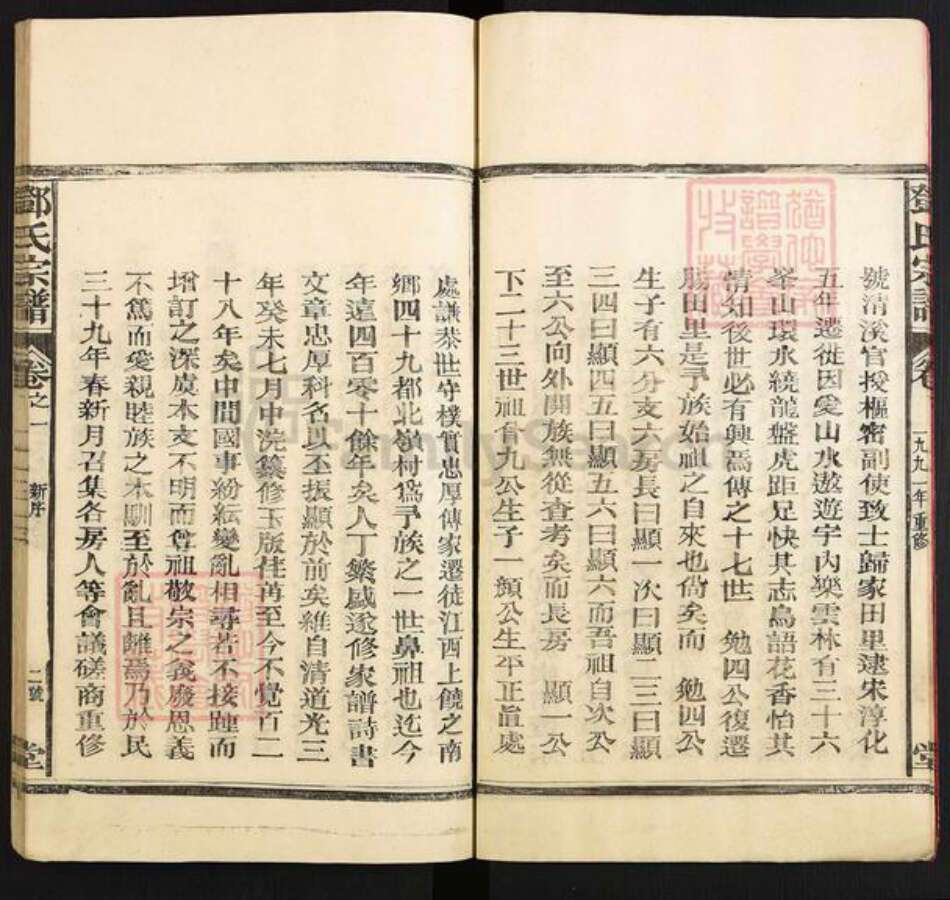 鄧氏宗譜
卷
一九九一年重修
堂
號清溪官授樞密副使致士歸家田里逮宋淳化
五年遷徙因愛山水遨遊宇內樂雲林有三十六
峯山環水繞龍盤虎距足快其志鳥語花香怡其
情知後世必有興焉傳之十七世 勉四公復遷
賜田里是予族始祖之自來也尙矣而 勉四公
生子有六分支六房長曰顯一次曰顯二三曰顯
三四曰顯四五曰顯五六曰顯六而吾祖自次公
至六公向外開族無從查考矣而長房 顯一公
下二十三世祖 九公生子一 顏公生平正直處
處謙恭世守樸實忠厚傳家遷徒江西上饒之南
鄉四十九都北嶺村爲予族之一世鼻祖也迄今
年遠四百零十餘年矣人丁繁盛遂修家譜詩書
文章忠厚科名以丕振顯於前矣維自清道光三
年癸未七月中浣纂修玉版佳苒至今不覺百二
十八年矣中間國事紛紜變亂相尋若不接踵而
增訂之深虞本支不明而尊祖敬宗之義廢恩義
不篤而愛親睦族之本馴至於亂且離焉乃於民
三十九年春新月召集各房人等會議磋商重修
鄧氏宗譜
卷之一
新序
二號
堂
FamilySearch